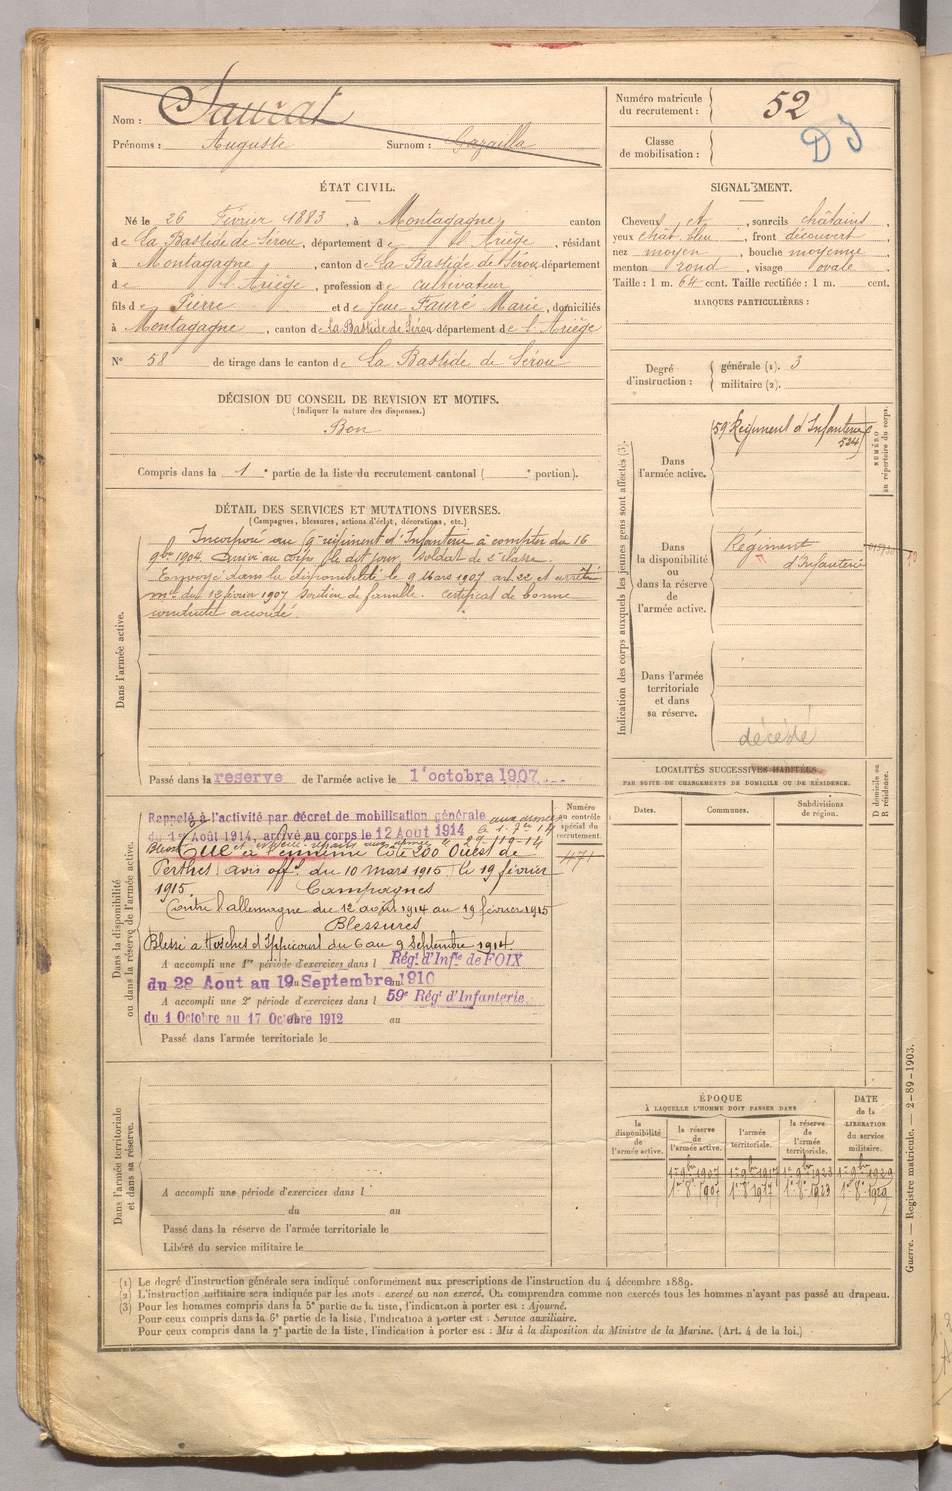 Nom : Saurat
Prénoms : Auguste Surnom : Gazailla
Numéro matricule du recrutement : 52
Classe de mobilisation :
DJ
ÉTAT CIVIL.
Né le 26 Février 1883, à Montagagne, canton
de La Bastide de Sérou, département de l'Ariège, résidant
à Montagagne, canton de La Bastide de Sérou département
de l'Ariège, profession de cultivateur
fils de Pierre et de feue Fauré Marie, domiciliés
à Montagagne, canton de La Bastide de Sérou département de l'Ariège
N° 58 de tirage dans le canton de La Bastide de Sérou
SIGNALEMENT.
Cheveux et, sourcils châtains
yeux chât. bleu, front découvert
nez moyen, bouche moyenne
menton rond, visage ovale
Taille : 1 m. 64 cent. Taille rectifiée : 1 m. cent.
MARQUES PARTICULIÈRES :
Degré d'instruction : générale (1). 3
militaire (2).
DÉCISION DU CONSEIL DE REVISION ET MOTIFS.
(Indiquer la nature des dispenses.)
Bon
Compris dans la 1e partie de la liste du recrutement cantonal ( e portion).
DÉTAIL DES SERVICES ET MUTATIONS DIVERSES.
(Campagnes, blessures, actions d'éclat, décorations, etc.)
Dans l'armée active.
Incorporé au 9e régiment d'Infanterie à compter du 16
9bre 1904. Arrivé au corps le dit jour, soldat de 2e classe.
Envoyé dans la disponibilité le 9 Mars 1907 art 22 et arrêté
mel du 12 février 1907 Soutien de famille. Certificat de bonne
conduite accordé.
Passé dans la reserve de l'armée active le 1 octobre 1907
Indication des corps auxquels les jeunes gens sont affectés (3).
NUMÉRO au répertoire du corps.
Dans l'armée active.
59e Régiment d'Infanterie
524
Dans la disponibilité ou dans la réserve de l'armée active.
Régiment
d'Infanterie
Dans l'armée territoriale et dans sa réserve.
décédé
Dans la disponibilité ou dans la réserve de l'armée active.
Numéro au contrôle spécial du recrutement.
471
Rappelé à l'activité par décret de mobilisation générale aux armées
du 1er Août 1914, arrivé au corps le 12 Aout 1914 le 1-7bre 14
Tué à l'ennemi Côte 200 Ouest de
Perthes (avis offel du 10 mars 1915) le 19 février
1915. Campagnes
Contre l'allemagne du 12 août 1914 au 19 février 1915
Blessures
Blessé à Hosches d'Ippécourt du 6 au 9 Septembre 1914.
A accompli une 1re période d'exercices dans l Régt d'Infie de FOIX
du 28 Aout au 19 Septembre 1910
A accompli une 2e période d'exercices dans l 59e Régt d'Infanterie
du 1 Octobre au 17 Octobre 1912 au
Passé dans l'armée territoriale le
LOCALITÉS SUCCESSIVES HABITÉES
PAR SUITE DE CHANGEMENTS DE DOMICILE OU DE RÉSIDENCE.
Dates. Communes. Subdivisions de région. D domicile ou R résidence.
Dans l'armée territoriale et dans sa réserve.
A accompli une période d'exercices dans l
du au
Passé dans la réserve de l'armée territoriale le
Libéré du service militaire le
ÉPOQUE
À LAQUELLE L'HOMME DOIT PASSER DANS
DATE de la LIBÉRATION du service militaire.
la disponibilité de l'armée active. la réserve de l'armée active. l'armée territoriale. la réserve de l'armée territoriale.
1er 9bre 1907 1er 9bre 1917 1er 9bre 1923 1er 9bre 1929
1er 8e 1907 1er 8e 1917 1er 8e 1923 1er 8e 1929
(1) Le degré d'instruction générale sera indiqué conformément aux prescriptions de l'instruction du 4 décembre 1889.
(2) L'instruction militaire sera indiquée par les mots : exercé ou non exercé. On comprendra comme non exercés tous les hommes n'ayant pas passé au drapeau.
(3) Pour les hommes compris dans la 5e partie de la liste, l'indication à porter est : Ajourné.
Pour ceux compris dans la 6e partie de la liste, l'indication à porter est : Service auxiliaire.
Pour ceux compris dans la 7e partie de la liste, l'indication à porter est : Mis à la disposition du Ministre de la Marine. (Art. 4 de la loi.)
Guerre. — Registre matricule. — 2-89-1903.